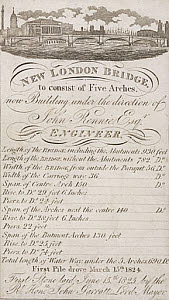 NEW LONDON BRIDGE,
to consist of Five Arches,
now Building under the direction of
John Rennie Esqr.
ENGINEER,
Length of the BRIDGE including the Abutments 930 feet
Length of the BRIDGE without the Abutments 782 Do.
Width of the BRIDGE from outside the Parapet 56 Do.
Width of the Carriage way 36 Do.
Span of Centre Arch 150 Do.
Rise to Do. 29 feet 6 Inches
Piers to Do. 24 feet
Span of the Arches next the centre 140 Do.
Rise to Do. 27 feet 6 Inches
Piers 22 feet
Span of the Abutment Arches 130 feet
Rise to Do. 24 feet
Piers to Do. 74 feet
Total length of Water Way under the 5 Arches 690 Do.
First Pile drove March 15th. 1824
First Stone laid June 15th. 1825 by the
Rt. Honble. John Garratt Lord Mayor